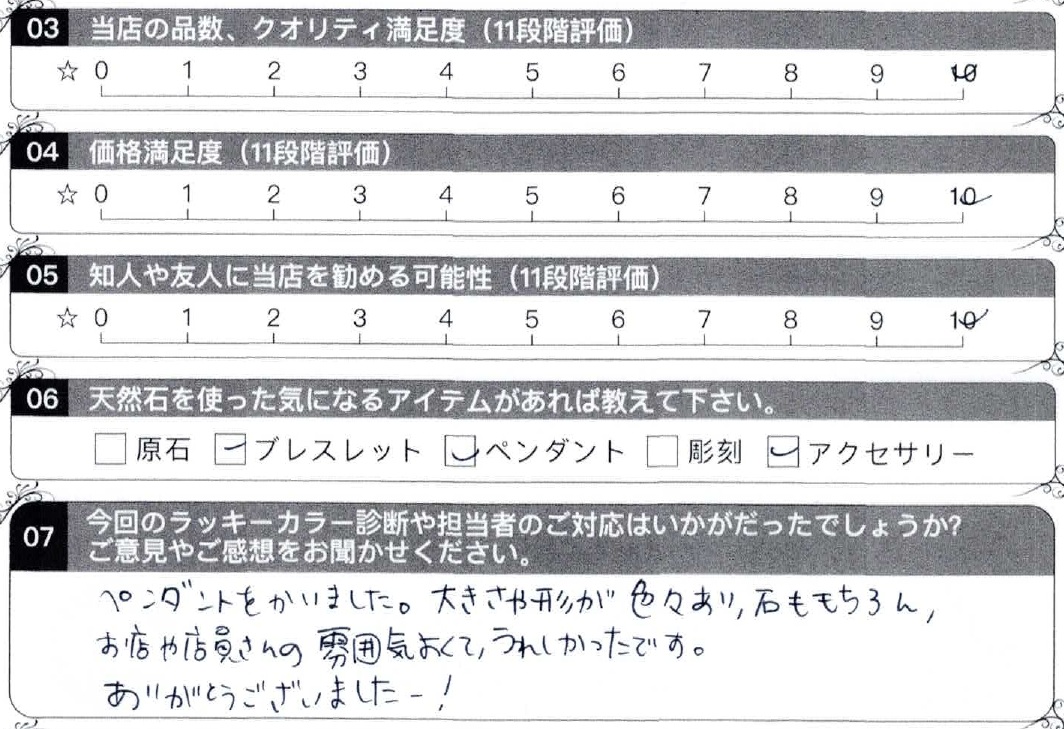 03 当店の品数、クオリティ満足度（11段階評価）
☆ 0 1 2 3 4 5 6 7 8 9 10
04 価格満足度（11段階評価）
☆ 0 1 2 3 4 5 6 7 8 9 10
05 知人や友人に当店を勧める可能性（11段階評価）
☆ 0 1 2 3 4 5 6 7 8 9 10
06 天然石を使った気になるアイテムがあれば教えて下さい。
原石 ブレスレット ペンダント 彫刻 アクセサリー
07 今回のラッキーカラー診断や担当者のご対応はいかがだったでしょうか?
ご意見やご感想をお聞かせください。
ペンダントをかいました。大きさや形が色々あり,石ももちろん,
お店や店員さんの雰囲気よくて,うれしかったです。
ありがとうございましたー!